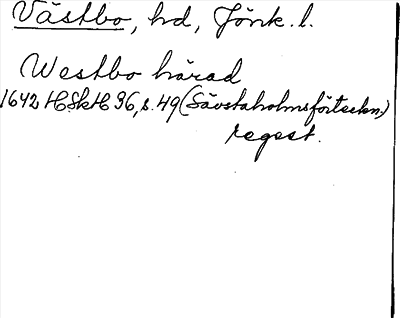 Västbo, hd, Jönk. l.
Westbo härad
1642 HSkH 36, s. 49 (Sävstaholmsförteckn.)
regest.